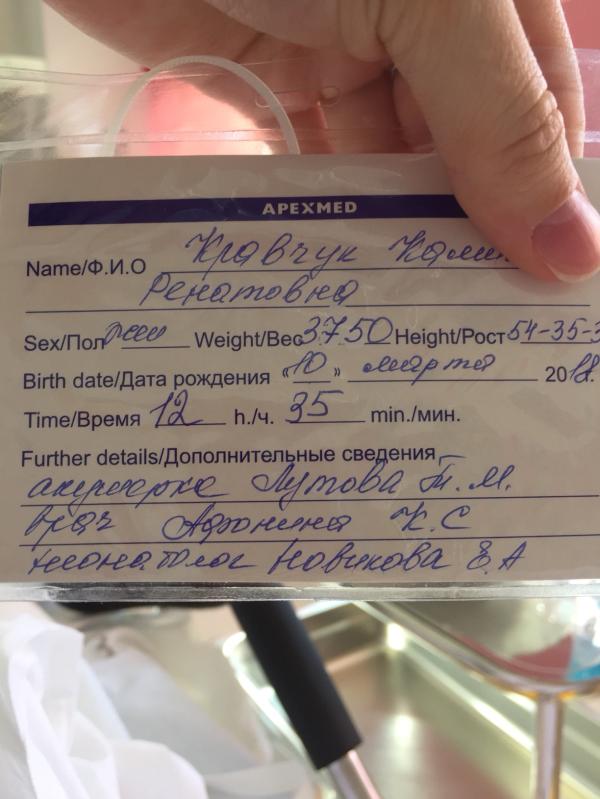 APEXMED
Name/Ф.И.О Кравчук
Ренатовна
Sex/Пол Weight/Вес 3750 Height/Рост 54-35-3
Birth date/Дата рождения «10» марта 2018.
Time/Время 12 h./ч. 35 min./мин.
Further details/Дополнительные сведения
акушерка Лутова Т.М.
врач Афонина К.С
неонатолог Новикова Е.А